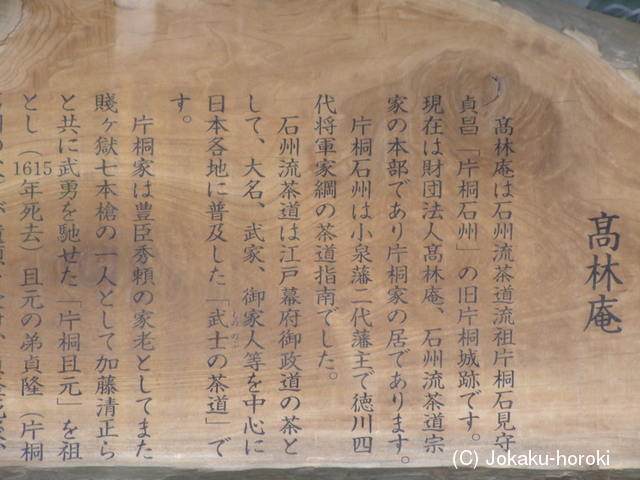 髙林庵
髙林庵は石州流茶道流祖片桐石見守
貞昌「片桐石州」の旧片桐城跡です。
現在は財団法人髙林庵、石州流茶道宗
家の本部であり片桐家の居であります。
片桐石州は小泉藩二代藩主で徳川四
代将軍家綱の茶道指南でした。
石州流茶道は江戸幕府御政道の茶と
して、大名、武家、御家人等を中心に
日本各地に普及した「武士の茶道」で
す。
片桐家は豊臣秀頼の家老としてまた
賤ヶ獄七本槍の一人として加藤清正ら
と共に武勇を馳せた「片桐且元」を祖
とし（1615年死去）且元の弟貞隆（片桐
(C) Jokaku-horoki